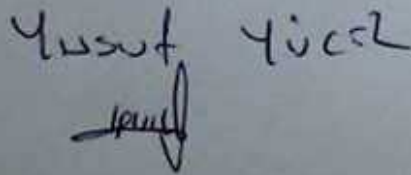 Yusuf Yücel